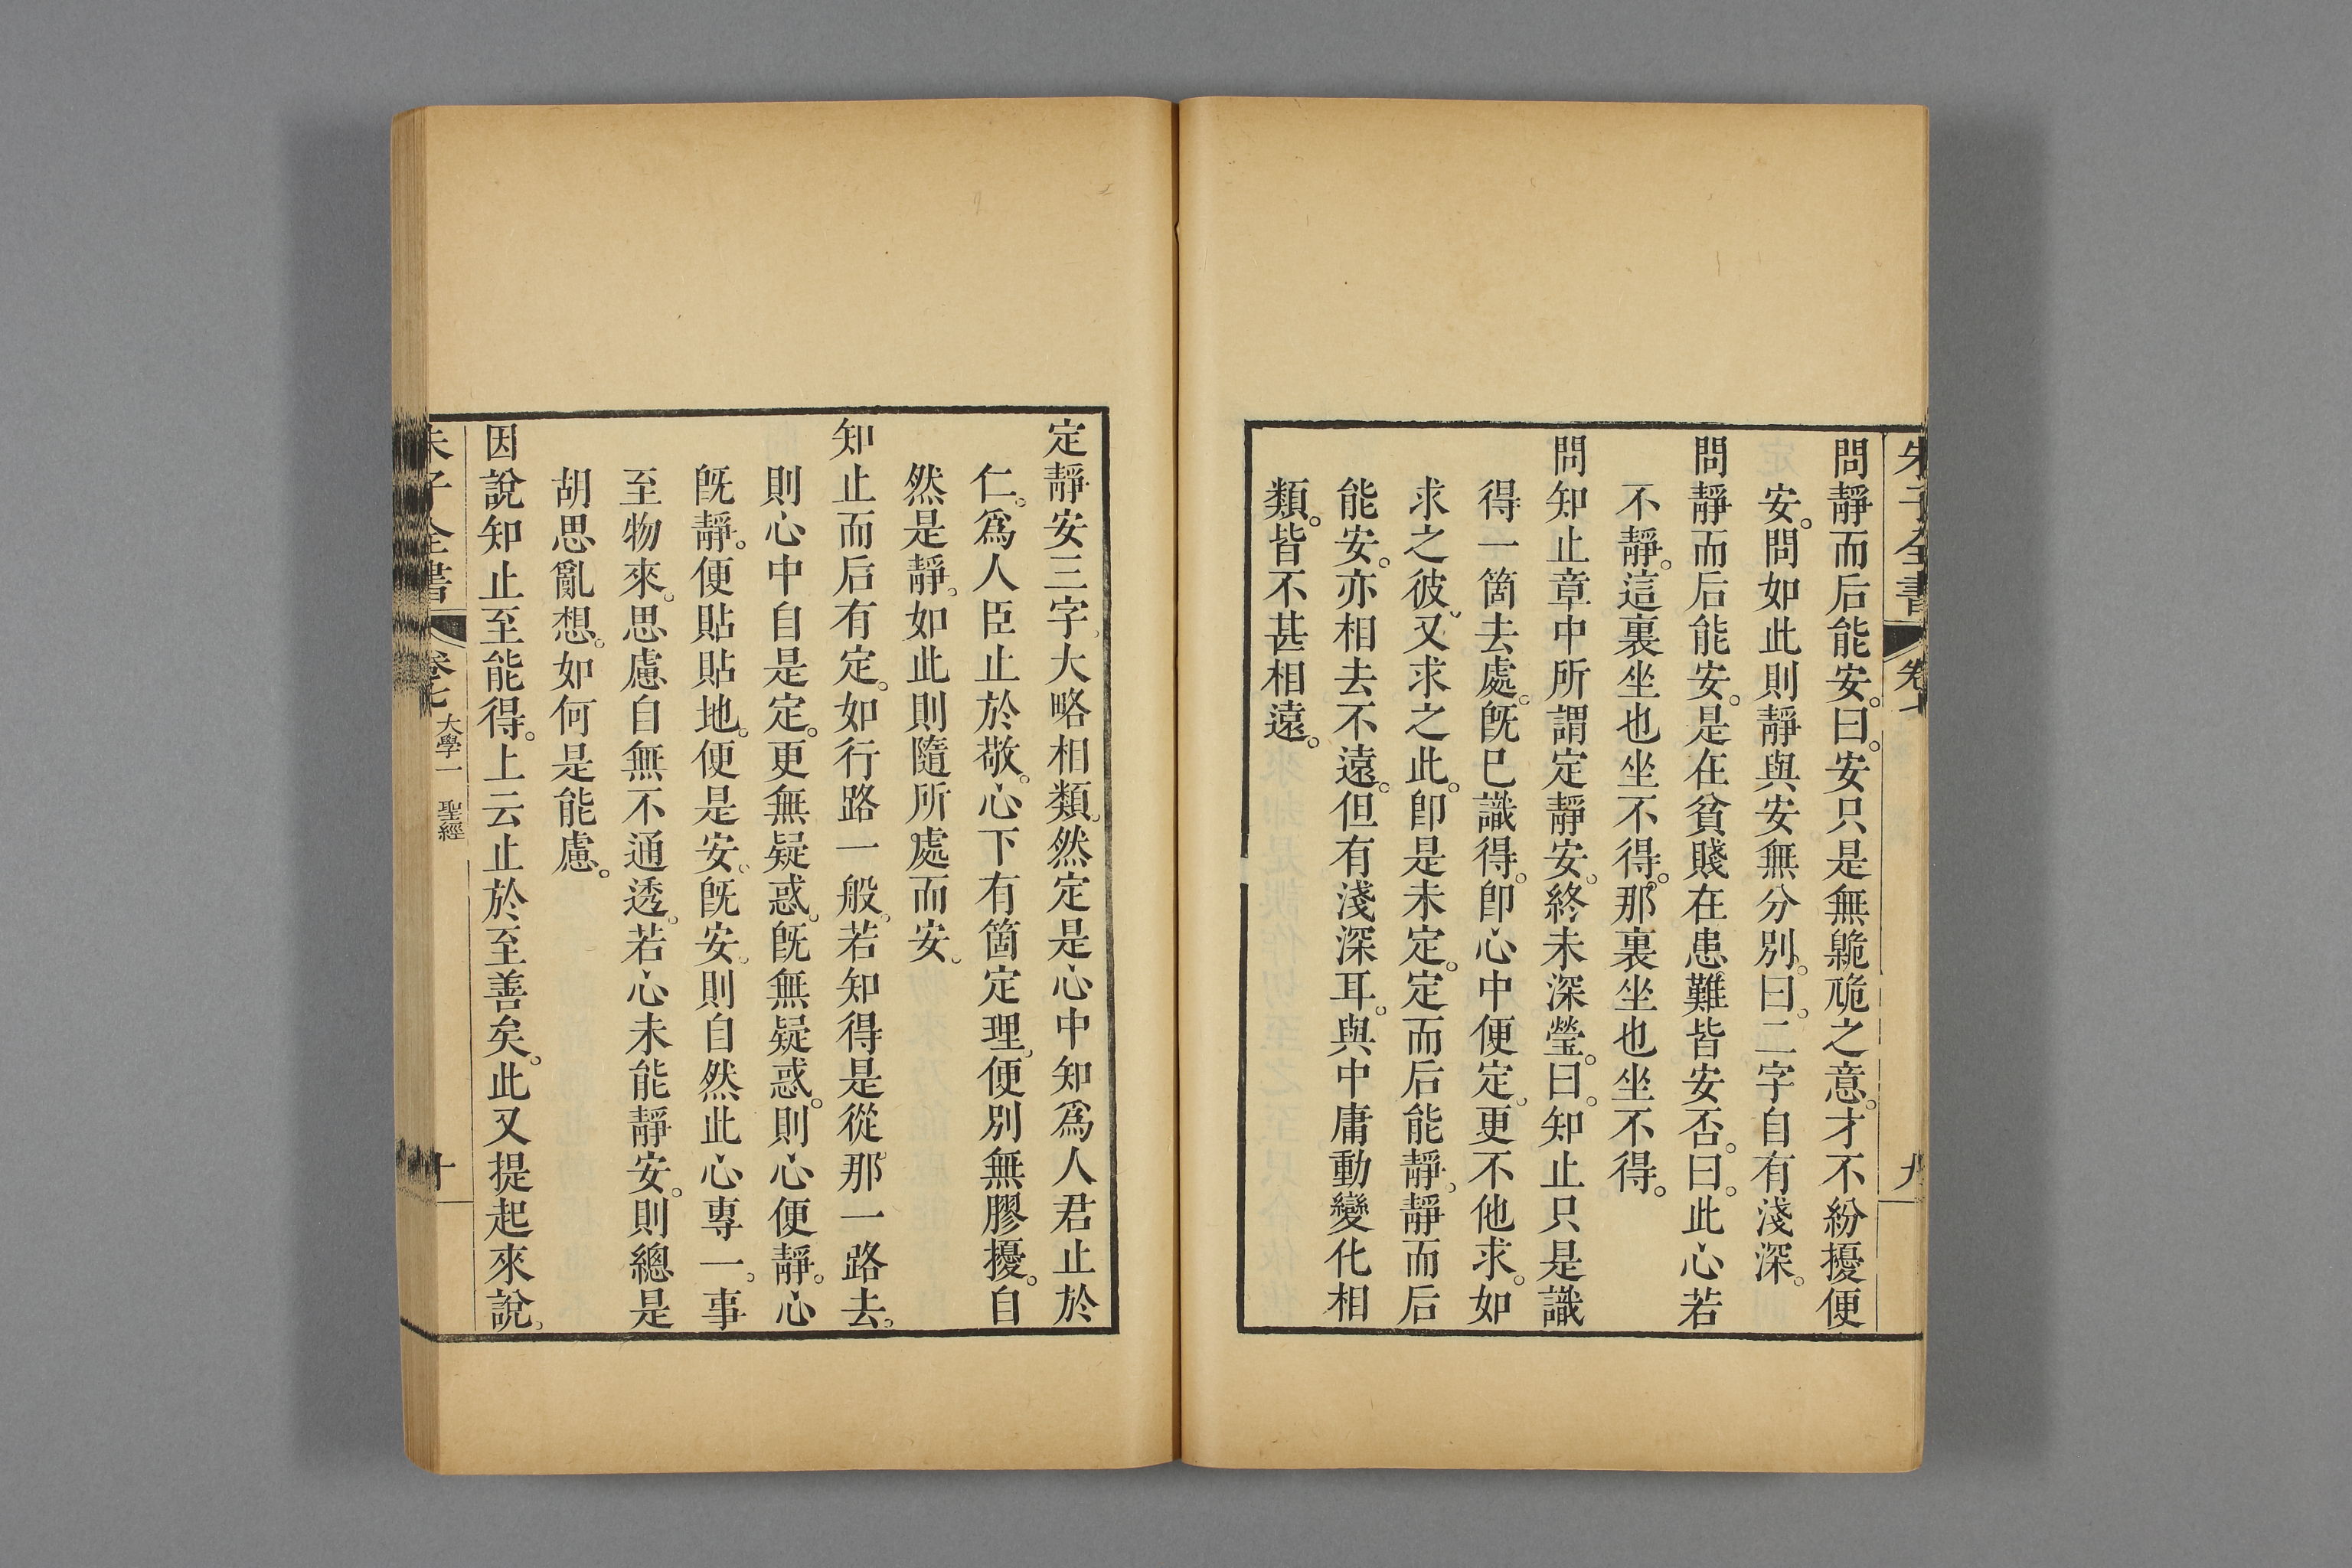 朱子全書 卷七 九
問靜而后能安。曰。安只是無臲卼之意。才不紛擾便
安。問如此則靜與安無分別。曰。二字自有淺深。
問靜而后能安。是在貧賤在患難皆安否。曰。此心若
不靜。這裏坐也坐不得。那裏坐也坐不得。
問知止章中所謂定靜安。終未深瑩。曰。知止只是識
得一箇去處。旣已識得。卽心中便定。更不他求。如
求之彼。又求之此。卽是未定。定而后能靜。靜而后
能安。亦相去不遠。但有淺深耳。與中庸動變化相
類。皆不甚相遠。
定靜安三字。大略相類。然定是心中知爲人君止於
仁。爲人臣止於敬。心下有箇定理。便別無膠擾。自
然是靜。如此則隨所處而安。
知止而后有定。如行路一般。若知得是從那一路去。
則心中自是定。更無疑惑。旣無疑惑。則心便靜。心
旣靜。便貼貼地。便是安。旣安。則自然此心專一。事
至物來。思慮自無不通透。若心未能靜安。則總是
胡思亂想。如何是能慮。
因說知止至能得。上云止於至善矣。此又提起來說。
朱子全書 卷七 大學一 聖經 十